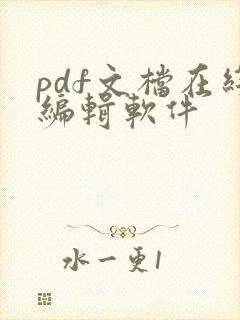 pdf文檔在
編輯軟件
水一更1